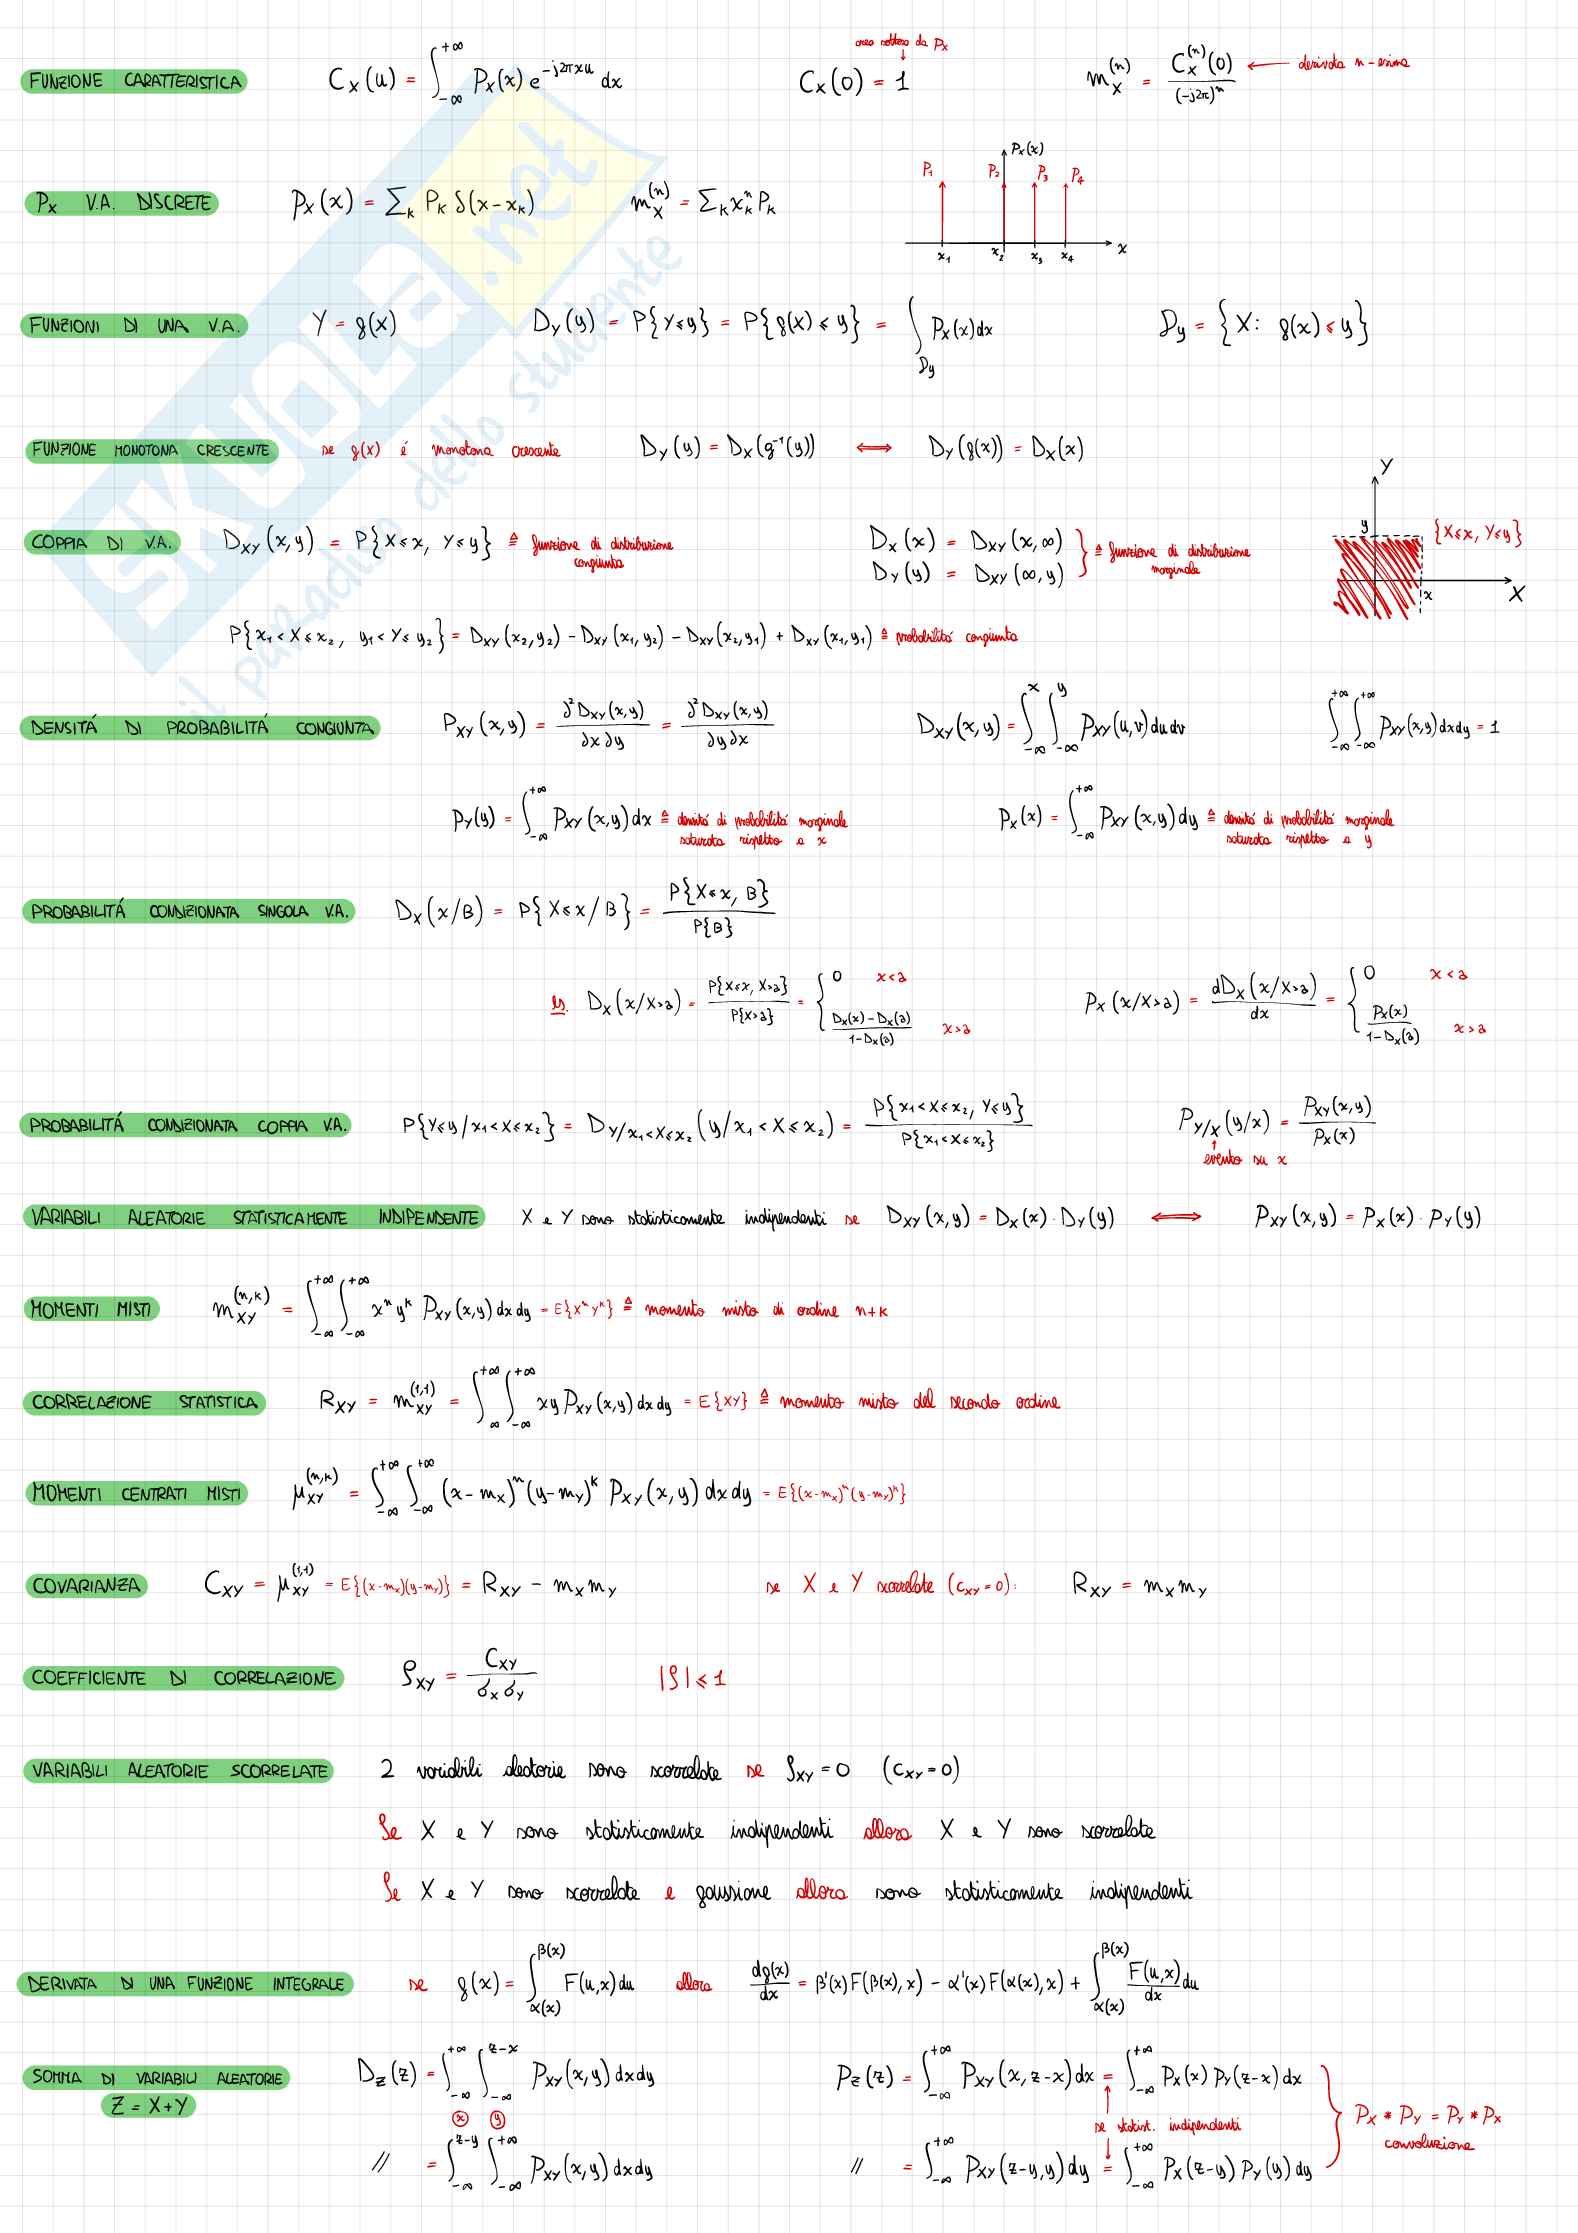 area sottesa da Px
FUNZIONE CARATTERISTICA C_X(u) = ∫_{-∞}^{+∞} p_X(x) e^{-j2πxu} dx C_X(0) = 1 m_X^{(n)} = C_X^{(n)}(0) / (-j2π)^n ← derivata n-esima
P_X V.A. DISCRETE p_X(x) = Σ_k P_k δ(x-x_k) m_X^{(n)} = Σ_k x_k^n P_k
P_X(x)
P_1 P_2 P_3 P_4
x_1 x_2 x_3 x_4 x
FUNZIONI DI UNA V.A. Y = g(x) D_Y(y) = P{Y≤y} = P{g(x) ≤ y} = ∫_{Dy} P_X(x)dx D_y = {X: g(x) ≤ y}
FUNZIONE MONOTONA CRESCENTE se g(x) é monotona crescente D_Y(y) = D_X(g^{-1}(y)) ⟺ D_Y(g(x)) = D_X(x)
COPPIA DI V.A. D_XY(x,y) = P{X≤x, Y≤y} ≜ funzione di distribuzione congiunta
D_X(x) = D_XY(x,∞)
D_Y(y) = D_XY(∞,y) } ≜ funzione di distribuzione marginale
Y y {X≤x, Y≤y} x X
P{x_1<X≤x_2, y_1<Y≤y_2} = D_XY(x_2,y_2) - D_XY(x_1,y_2) - D_XY(x_2,y_1) + D_XY(x_1,y_1) ≜ probabilitá congiunta
DENSITÁ DI PROBABILITÁ CONGIUNTA P_XY(x,y) = ∂²D_XY(x,y) / ∂x∂y = ∂²D_XY(x,y) / ∂y∂x D_XY(x,y) = ∫_{-∞}^{x} ∫_{-∞}^{y} P_XY(u,v) du dv ∫_{-∞}^{+∞} ∫_{-∞}^{+∞} P_XY(x,y) dxdy = 1
P_Y(y) = ∫_{-∞}^{+∞} P_XY(x,y) dx ≜ densitá di probabilitá marginale saturata rispetto a x P_X(x) = ∫_{-∞}^{+∞} P_XY(x,y) dy ≜ densitá di probabilitá marginale saturata rispetto a y
PROBABILITÁ CONDIZIONATA SINGOLA V.A. D_X(x/B) = P{X≤x/B} = P{X≤x, B} / P{B}
es. D_X(x/X>a) = P{X≤x, X>a} / P{X>a} = { 0 x<a
(D_X(x)-D_X(a)) / (1-D_X(a)) x>a
P_X(x/X>a) = dD_X(x/X>a) / dx = { 0 x<a
P_X(x) / (1-D_X(a)) x>a
PROBABILITÁ CONDIZIONATA COPPIA V.A. P{Y≤y/x_1<X≤x_2} = D_{Y/x_1<X≤x_2}(y/x_1<X≤x_2) = P{x_1<X≤x_2, Y≤y} / P{x_1<X≤x_2} P_{Y/X}(y/x) = P_XY(x,y) / P_X(x)
evento su x
VARIABILI ALEATORIE STATISTICAMENTE INDIPENDENTE X e Y sono statisticamente indipendenti se D_XY(x,y) = D_X(x) · D_Y(y) ⟺ P_XY(x,y) = P_X(x) · P_Y(y)
MOMENTI MISTI m_XY^{(n,k)} = ∫_{-∞}^{+∞} ∫_{-∞}^{+∞} x^n y^k P_XY(x,y) dx dy = E{X^n Y^k} ≜ momento misto di ordine n+k
CORRELAZIONE STATISTICA R_XY = m_XY^{(1,1)} = ∫_{∞}^{+∞} ∫_{-∞}^{+∞} xy P_XY(x,y) dx dy = E{XY} ≜ momento misto del secondo ordine
MOMENTI CENTRATI MISTI μ_XY^{(n,k)} = ∫_{-∞}^{+∞} ∫_{-∞}^{+∞} (x-m_X)^n (y-m_Y)^k P_XY(x,y) dx dy = E{(x-m_X)^n (y-m_Y)^k}
COVARIANZA C_XY = μ_XY^{(1,1)} = E{(x-m_X)(y-m_Y)} = R_XY - m_X m_Y se X e Y scorrelate (C_XY=0): R_XY = m_X m_Y
COEFFICIENTE DI CORRELAZIONE ρ_XY = C_XY / σ_X σ_Y |ρ| ≤ 1
VARIABILI ALEATORIE SCORRELATE 2 variabili aleatorie sono scorrelate se ρ_XY = 0 (C_XY = 0)
Se X e Y sono statisticamente indipendenti allora X e Y sono scorrelate
Se X e Y sono scorrelate e gaussione allora sono statisticamente indipendenti
DERIVATA DI UNA FUNZIONE INTEGRALE se g(x) = ∫_{α(x)}^{β(x)} F(u,x) du allora dg(x)/dx = β'(x)F(β(x),x) - α'(x)F(α(x),x) + ∫_{α(x)}^{β(x)} F(u,x)/dx du
SOMMA DI VARIABILI ALEATORIE D_Z(z) = ∫_{-∞}^{+∞} ∫_{-∞}^{z-x} P_XY(x,y) dxdy P_Z(z) = ∫_{-∞}^{+∞} P_XY(x,z-x) dx = ∫_{-∞}^{+∞} P_X(x) P_Y(z-x) dx
Z = X+Y
x y se statist. indipendenti P_X * P_Y = P_Y * P_X
convoluzione
// = ∫_{-∞}^{z-y} ∫_{-∞}^{+∞} P_XY(x,y) dxdy // = ∫_{-∞}^{+∞} P_XY(z-y,y) dy = ∫_{-∞}^{+∞} P_X(z-y) P_Y(y) dy
SKUOLA.net
il paradiso dello studente